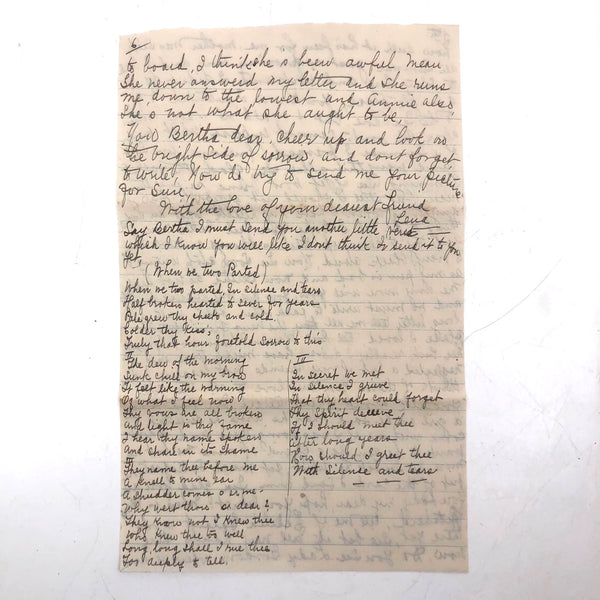 6
to board, I think she s been awful mean
She never answerd my letter and she runs
me, down to the lowest and Annie also,
She s not what she aught to be,
Now Bertha dear, cheer up and look on
the bright side of sorrow, and dont forget
to write, Now do try to send me your picture
for Sure,
With the love of your dearest friend
Lena
Say Bertha I must send you another little verse
which I know you will like I dont think I send it to you
yet,
(When we two Parted)
When we two parted, In Silence and tears
Half broken hearted to sever for years
Pale grew thy cheeks and cold.
Colder thy Kiss;
Truly that hour foretold Sorrow to this
II
The dew of the morning
Sunk chill on my brow
It felt like the warning
Of what I feel now
Thy vows are all broken
And light is thy fame
I hear thy name Spoken
And Share in its Shame
III
They name thee before me
A Knell to mine ear
A Shudder comes o er me-
Why wert thou so dear?
They Know not I Knew thee
Who Knew thee to well
Long, long, Shall I rue thee
Too deeply to tell.
IV
In secret we met
In Silence I grieve
That thy heart could forget
Thy Spirit deceive
If I Should meet thee
After long years
How Should I greet thee
With Silence and tears